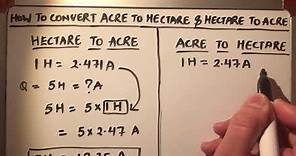 HOW TO CONVERT ACRE TO HECTARE & HECTARE TO ACRE
HECTARE TO ACRE
1 H = 2.471 A
Q = 5H = ? A
5H = 5 × 1 H
= 5 × 2.47 A
5H = 12.35 A
ACRE TO HECTARE
1 H = 2.47 A